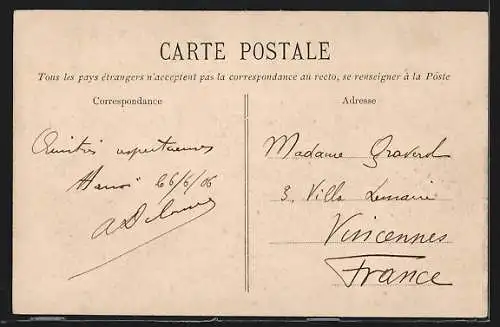 CARTE POSTALE
Tous les pays étrangers n'acceptent pas la correspondance au recto, se renseigner à la Poste
Correspondance
Amitiés respectueuses
Hanoi 26/6/06
Adresse
Madame
3, Villa
Vincennes
France